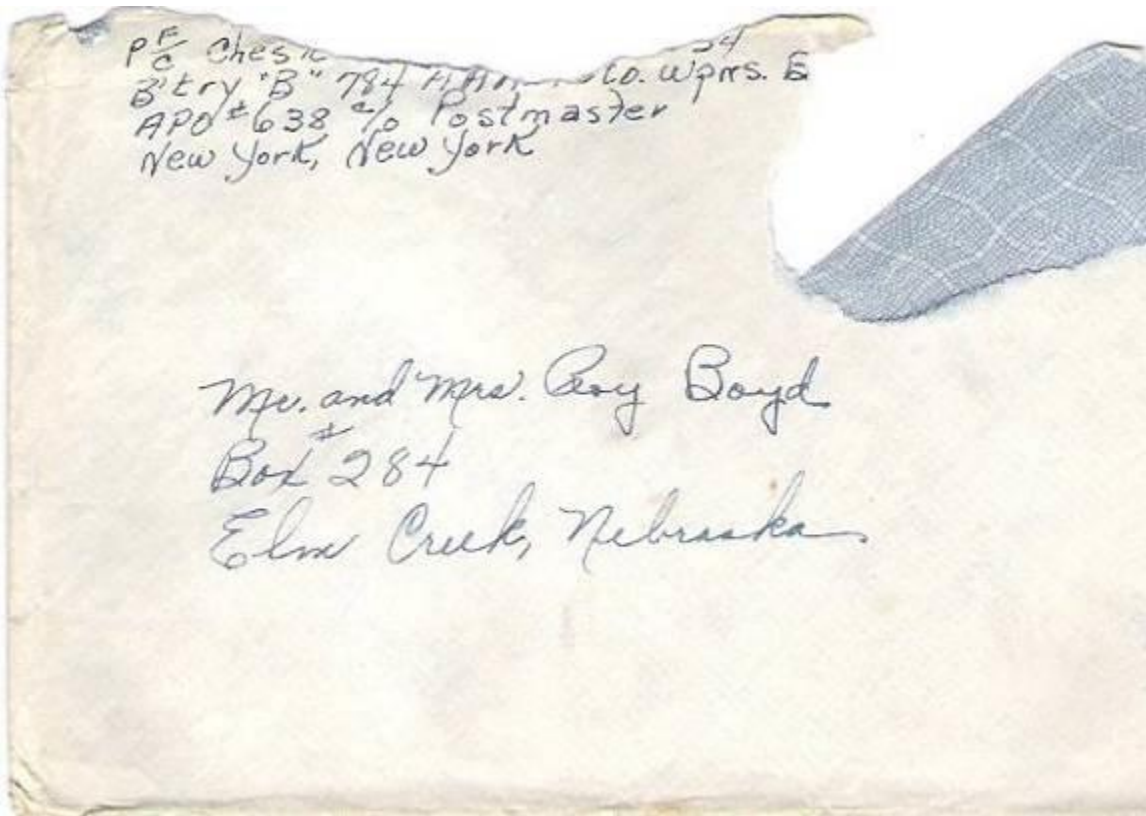 PFC Ches
B'try "B" 784 to. Wpns. B
APO #638 c/o Postmaster
New York, New York
Mr. and Mrs. Roy Boyd
Box #284
Elm Creek, Nebraska